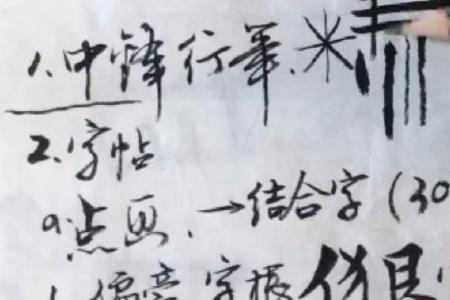 1.中锋行笔.米
2.字帖
a.点画.→结合字(30
偏旁 字根